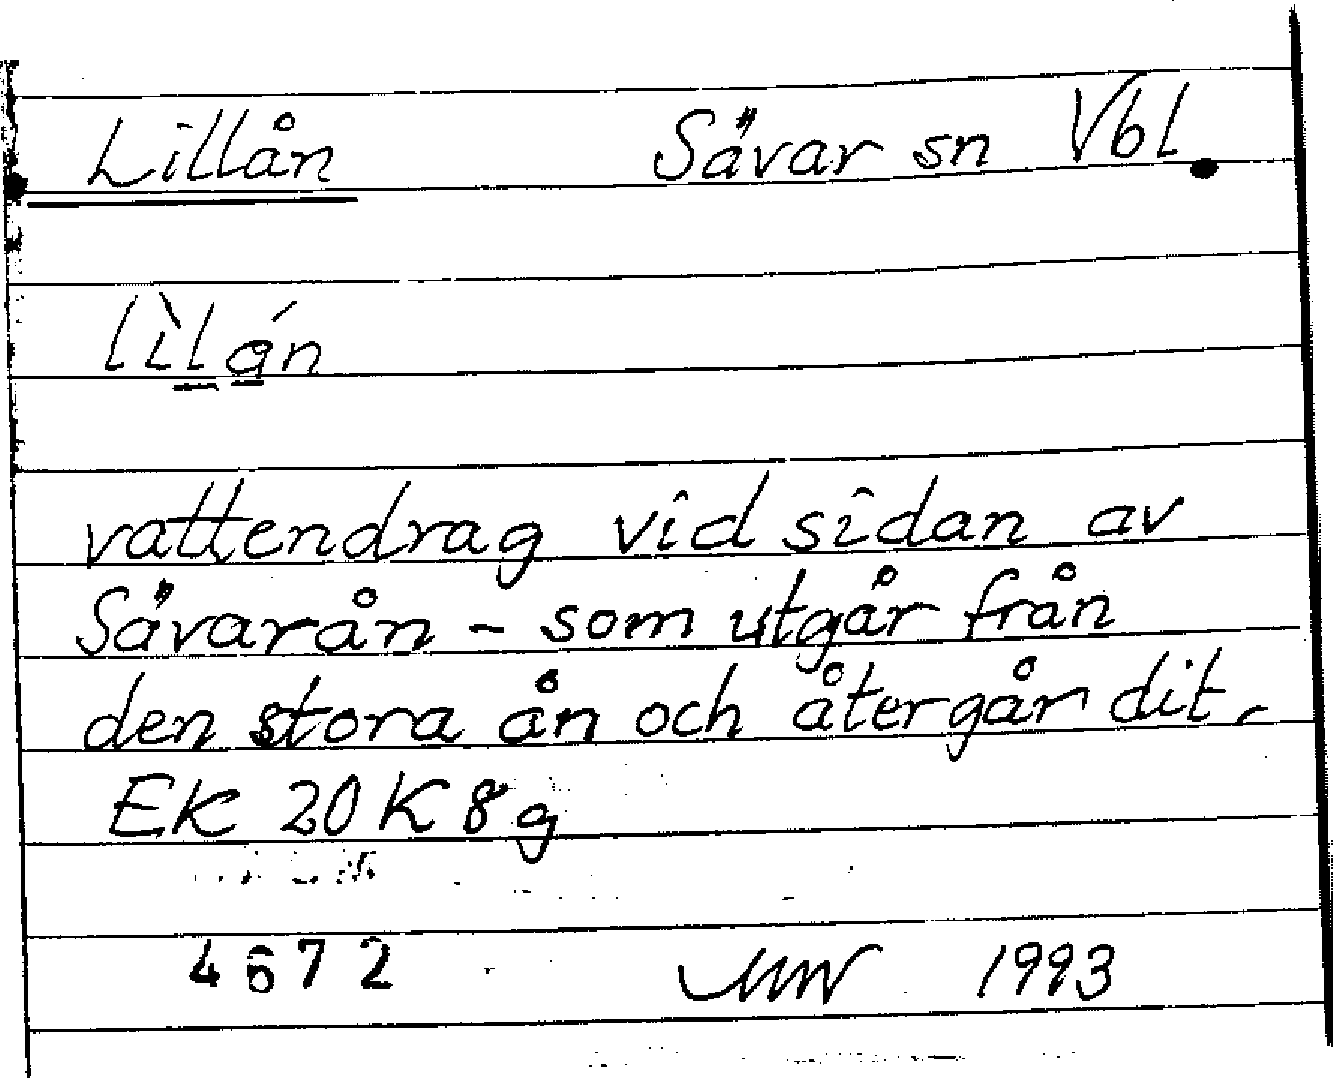 Lillån Sävar sn Vbl.
lìlån
vattendrag vid sidan av
Sävarån - som utgår från
den stora ån och återgår dit.
EK 20 K 8 g
4672 1993